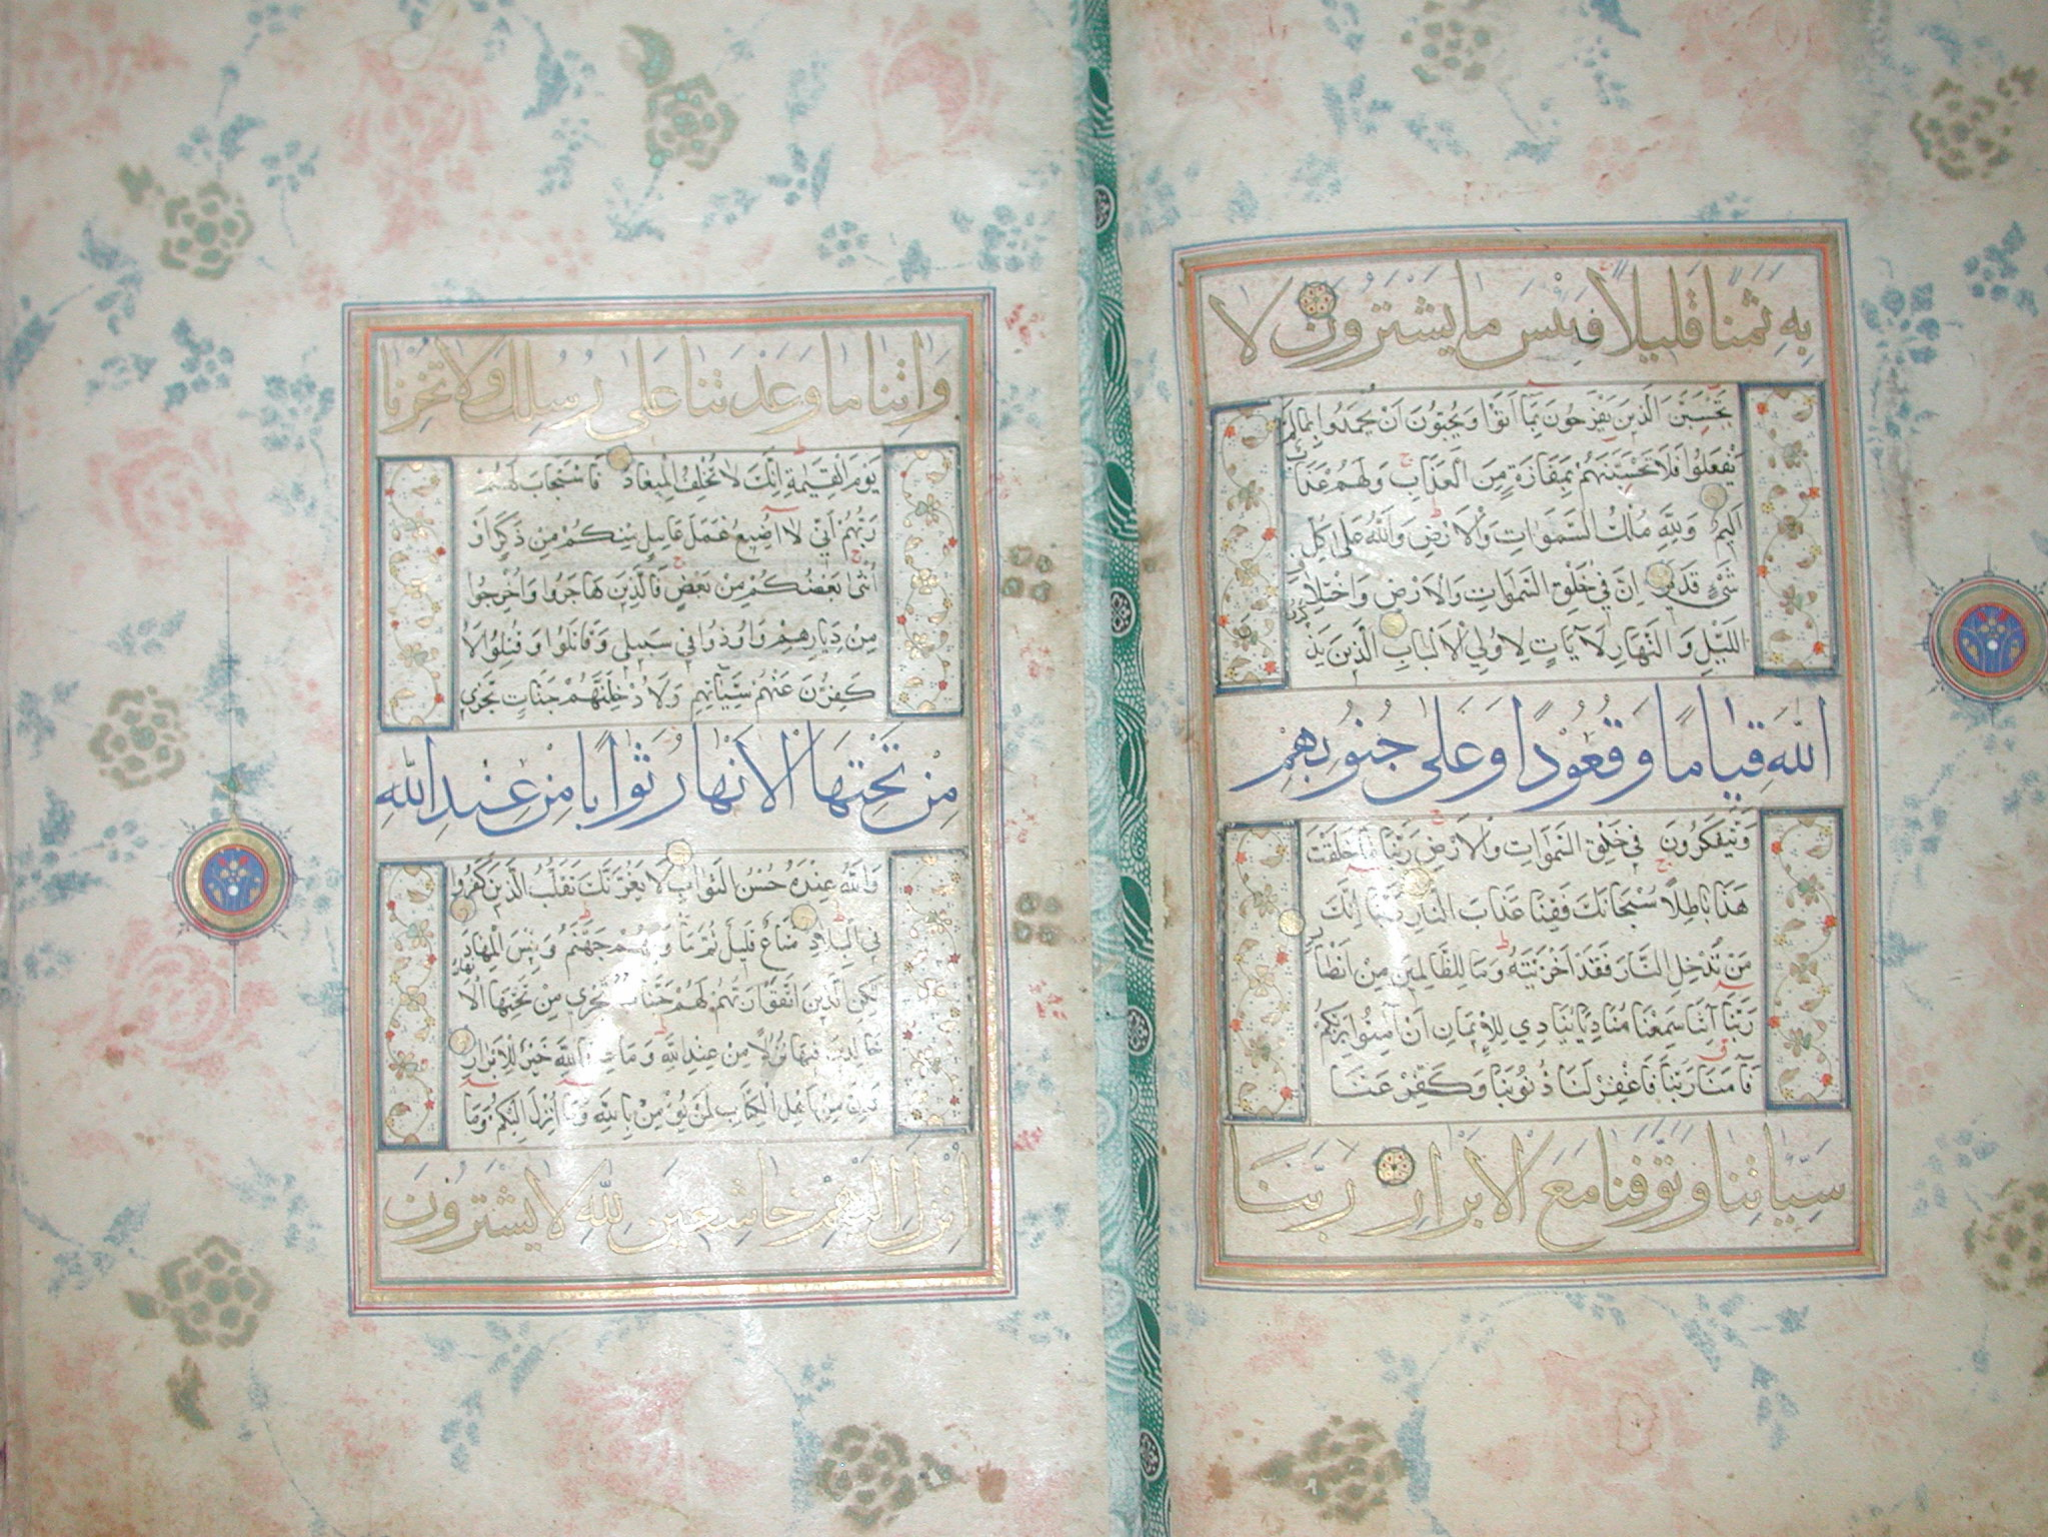 بِهِ ثَمَنًا قَلِيلًا فَبِئْسَ مَا يَشْتَرُونَ لَا
تَحْسَبَنَّ الَّذِينَ يَفْرَحُونَ بِمَا أَتَوْا وَيُحِبُّونَ أَنْ يُحْمَدُوا بِمَا لَمْ
يَفْعَلُوا فَلَا تَحْسَبَنَّهُمْ بِمَفَازَةٍ مِنَ الْعَذَابِ وَلَهُمْ عَذَابٌ
أَلِيمٌ وَلِلَّهِ مُلْكُ السَّمَوَاتِ وَالْأَرْضِ وَاللَّهُ عَلَى كُلِّ
شَيْءٍ قَدِيرٌ إِنَّ فِي خَلْقِ السَّمَوَاتِ وَالْأَرْضِ وَاخْتِلَافِ
اللَّيْلِ وَالنَّهَارِ لَآيَاتٍ لِأُولِي الْأَلْبَابِ الَّذِينَ يَذْكُرُونَ
اللَّهَ قِيَامًا وَقُعُودًا وَعَلَى جُنُوبِهِمْ
وَيَتَفَكَّرُونَ فِي خَلْقِ السَّمَوَاتِ وَالْأَرْضِ رَبَّنَا مَا خَلَقْتَ
هَذَا بَاطِلًا سُبْحَانَكَ فَقِنَا عَذَابَ النَّارِ رَبَّنَا إِنَّكَ
مَنْ تُدْخِلِ النَّارَ فَقَدْ أَخْزَيْتَهُ وَمَا لِلظَّالِمِينَ مِنْ أَنْصَارٍ
رَبَّنَا إِنَّنَا سَمِعْنَا مُنَادِيًا يُنَادِي لِلْإِيمَانِ أَنْ آمِنُوا بِرَبِّكُمْ
فَآمَنَّا رَبَّنَا فَاغْفِرْ لَنَا ذُنُوبَنَا وَكَفِّرْ عَنَّا
سَيِّئَاتِنَا وَتَوَفَّنَا مَعَ الْأَبْرَارِ رَبَّنَا
وَآتِنَا مَا وَعَدْتَنَا عَلَى رُسُلِكَ وَلَا تُخْزِنَا
يَوْمَ الْقِيَمَةِ إِنَّكَ لَا تُخْلِفُ الْمِيعَادَ فَاسْتَجَابَ لَهُمْ
رَبُّهُمْ أَنِّي لَا أُضِيعُ عَمَلَ عَامِلٍ مِنْكُمْ مِنْ ذَكَرٍ أَوْ
أُنْثَى بَعْضُكُمْ مِنْ بَعْضٍ فَالَّذِينَ هَاجَرُوا وَأُخْرِجُوا
مِنْ دِيَارِهِمْ وَأُوذُوا فِي سَبِيلِي وَقَاتَلُوا وَقُتِلُوا لَأُ
كَفِّرَنَّ عَنْهُمْ سَيِّئَاتِهِمْ وَلَأُدْخِلَنَّهُمْ جَنَّاتٍ تَجْرِي
مِنْ تَحْتِهَا الْأَنْهَارُ ثَوَابًا مِنْ عِنْدِ اللَّهِ
وَاللَّهُ عِنْدَهُ حُسْنُ الثَّوَابِ لَا يَغُرَّنَّكَ تَقَلُّبُ الَّذِينَ كَفَرُوا
فِي الْبِلَادِ مَتَاعٌ قَلِيلٌ ثُمَّ مَأْوَاهُمْ جَهَنَّمُ وَبِئْسَ الْمِهَادُ
لَكِنِ الَّذِينَ اتَّقَوْا رَبَّهُمْ لَهُمْ جَنَّاتٌ تَجْرِي مِنْ تَحْتِهَا الْأَنْهَارُ
خَالِدِينَ فِيهَا نُزُلًا مِنْ عِنْدِ اللَّهِ وَمَا عِنْدَ اللَّهِ خَيْرٌ لِلْأَبْرَارِ
وَإِنَّ مِنْ أَهْلِ الْكِتَابِ لَمَنْ يُؤْمِنُ بِاللَّهِ وَمَا أُنْزِلَ إِلَيْكُمْ وَمَا
أُنْزِلَ إِلَيْهِمْ خَاشِعِينَ لِلَّهِ لَا يَشْتَرُونَ